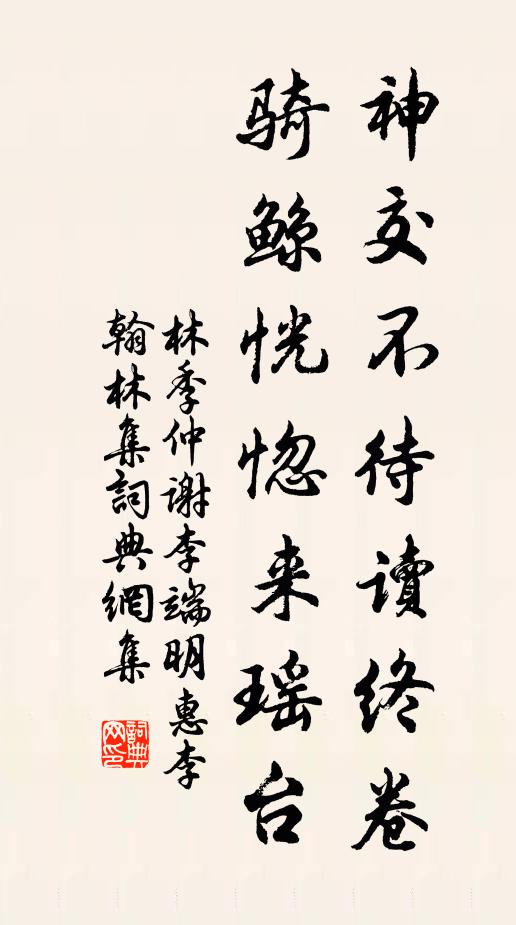 神交不待讀终卷
骑鲸恍惚来瑶台
林季仲谢李端明惠李
翰林集詞典網集
詞典网印